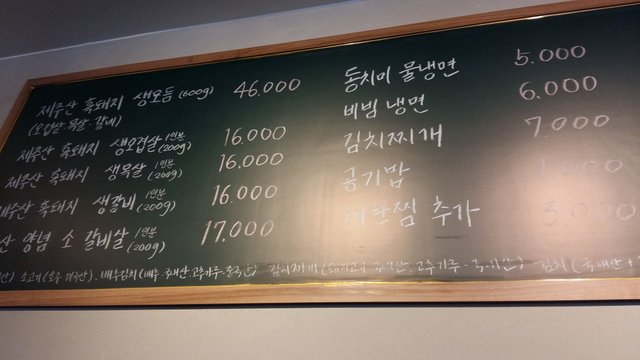 제주산 흑돼지 생모듬 (600g) 46.000
(오겹살·목살·갈비)
제주산 흑돼지 생오겹살 1인분 (200g) 16.000
제주산 흑돼지 생목살 1인분 (200g) 16.000
제주산 흑돼지 생갈비 1인분 (200g) 16.000
산 양념 소 갈비살 1인분 (200g) 17.000
동치미 물냉면 5.000
비빔 냉면 6.000
김치찌개 7.000
공기밥
계란찜 추가 3.000
소고기(호주, 미국산), 배추김치(배추-국내산, 고추가루-중국산) 김치찌개 김치(국내산